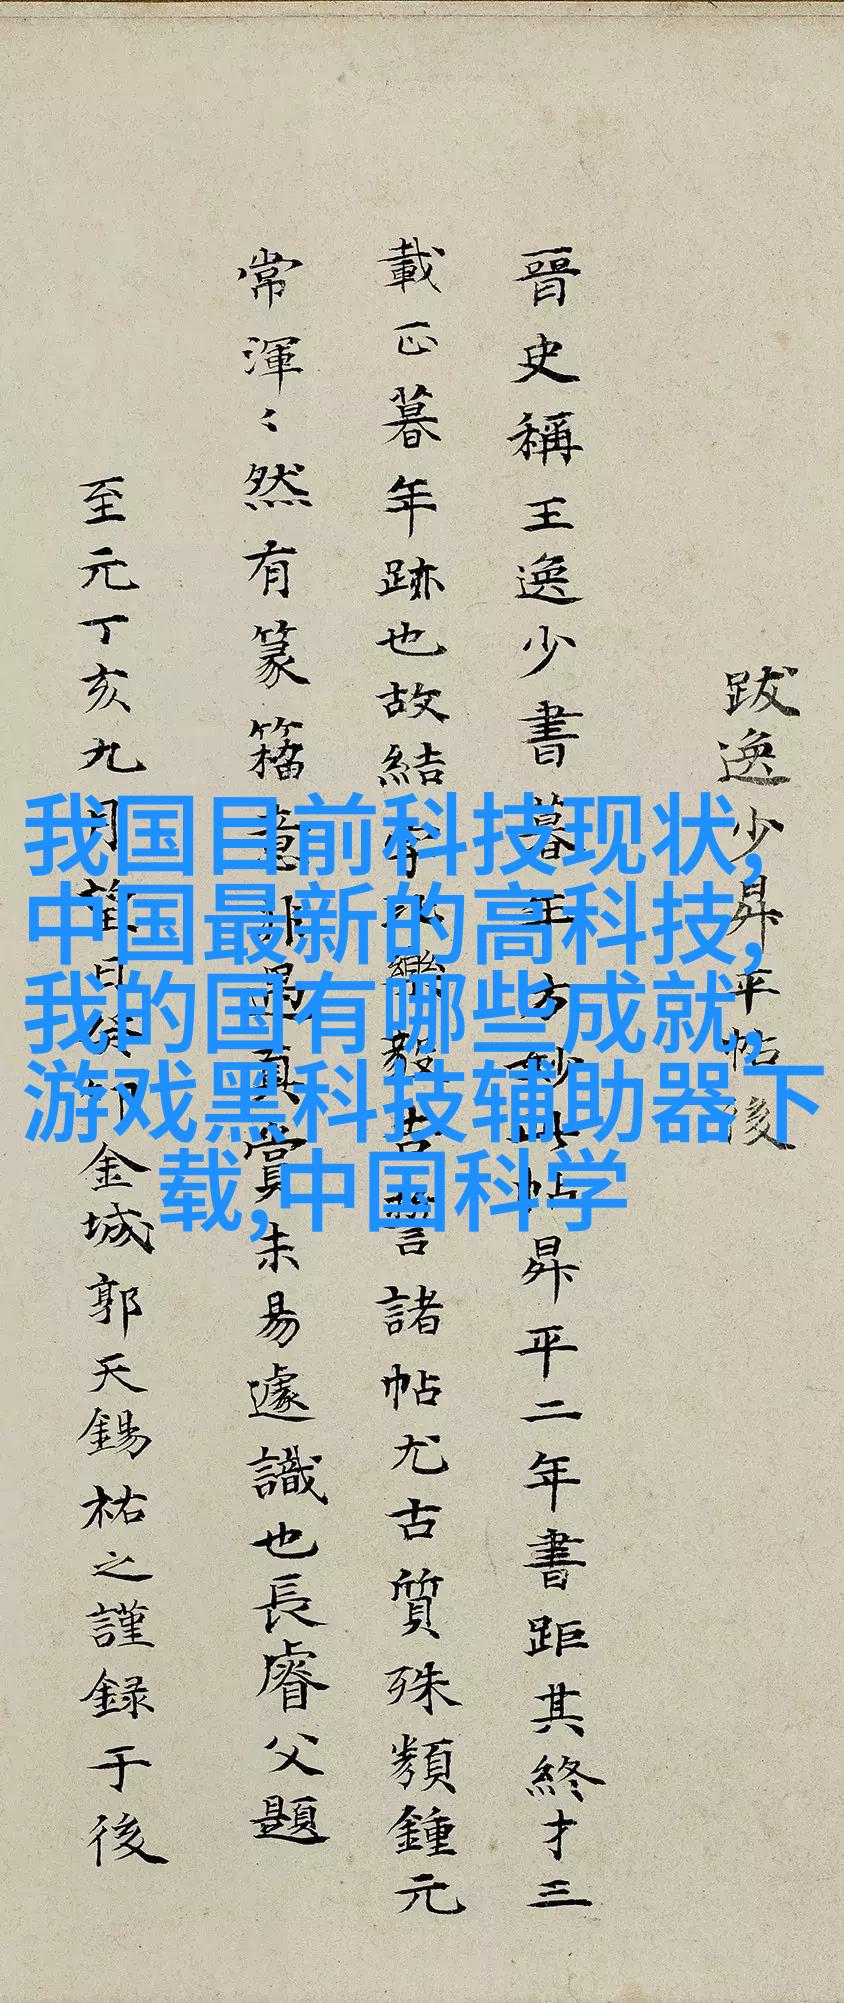 跋逸少昇平帖後
晉史稱王逸少書暮年方妙此帖昇平二年書距其終才三
載正暮年跡也故結字與樂毅告誓諸帖尤古質殊類鍾元
常渾〻然有篆籀意非遇真賞未易遽識也長睿父題
至元丁亥九月望日餘卿金城郭天錫祐之謹録于後
我国目前科技现状,
中国最新的高科技,
我的国有哪些成就,
游戏黑科技辅助器下
载,中国科学